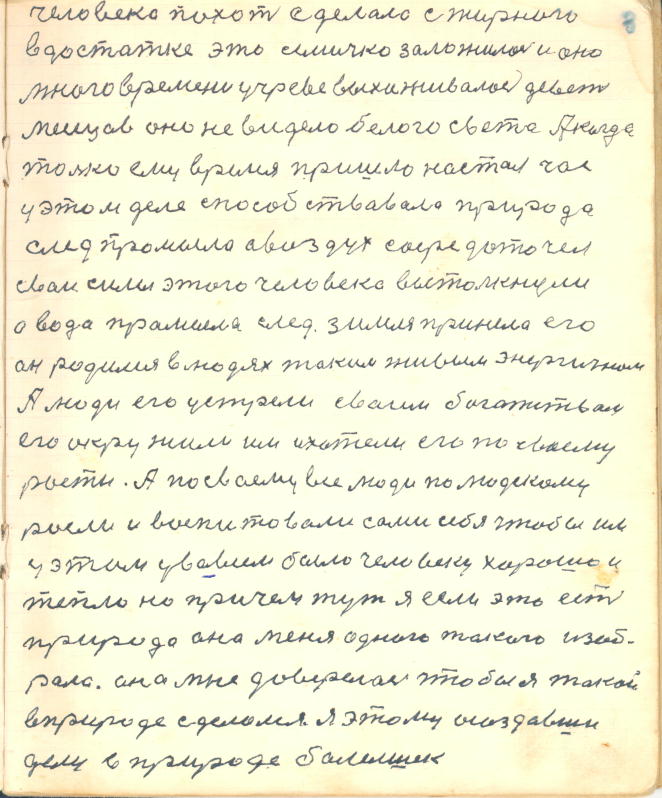 8
человека похоть сделала с жирного
вдостатке это семичко заложилось и оно
много времени учреве выхаживалось деветь
месцов оно не видело белого света А когда
толко ему время пришло настал час
уэтом деле способствавала природа
след промыла авоздух сосредоточел
сваи силы этого человека вытолкнули
а вода прамыла след. зимля принела его
он родился влюдях таким живым энергичным
А люди его устрели сваим богатитвам
его окружили им ихотели его по своему
рости. А посваему все люди по людскому
росли и воспитовали сами себя чтобы им
уэтом увсвием было человеку хорошо и
тепло но причем тут я если это есть
природа она меня одного такого изоб-
рала. она мне доверелась чтобы я такой
вприроде сделался. я этому создавши
делу в природе